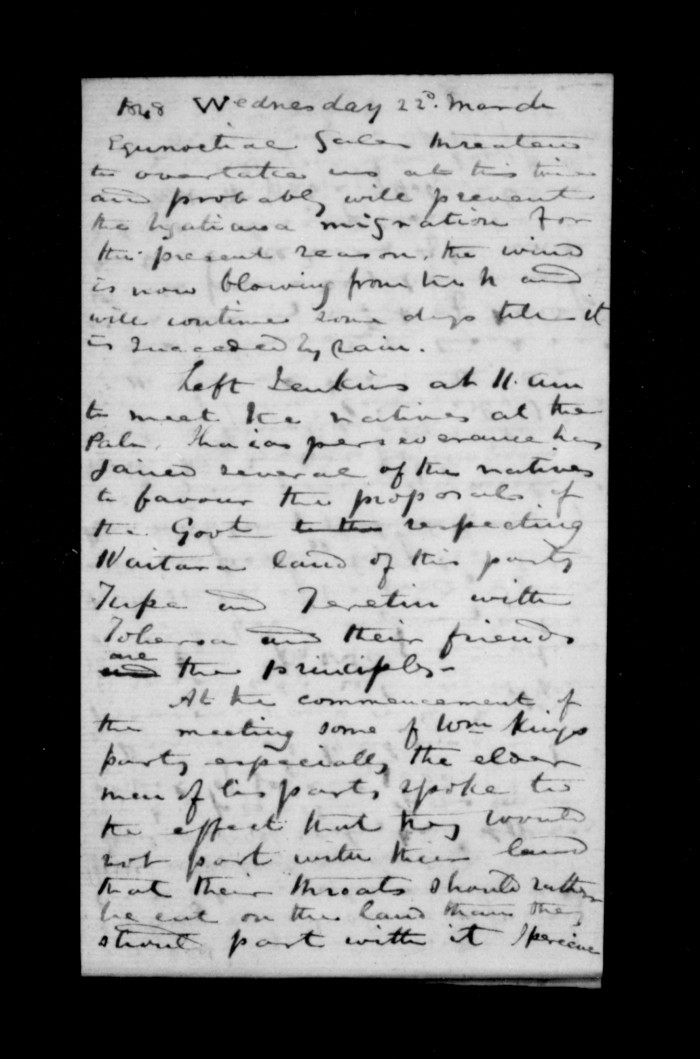 1848 Wednesday 22d. March
Equnoctial Gales threatens
to overtake us at this time
and probably will prevent
the Ngatiawa migration for
the present season. the wind
is now blowing from the N and
will continue some days till it
is succeeded by rain.
Left Jenkins at 11. am
to meet the natives at the
Pah. perseverance has
gained several of the natives
to favour the proposals of
the Govt respecting
Waitara land of this party
Tupe and with
and their friends
are the principles -
At the commencement of
the meeting some of Wm Kings
party especially the elder
men of his party spoke to
the effect that they would
not part with their land
that their throats should rather
be cut on the land than they
should part with it I perceive